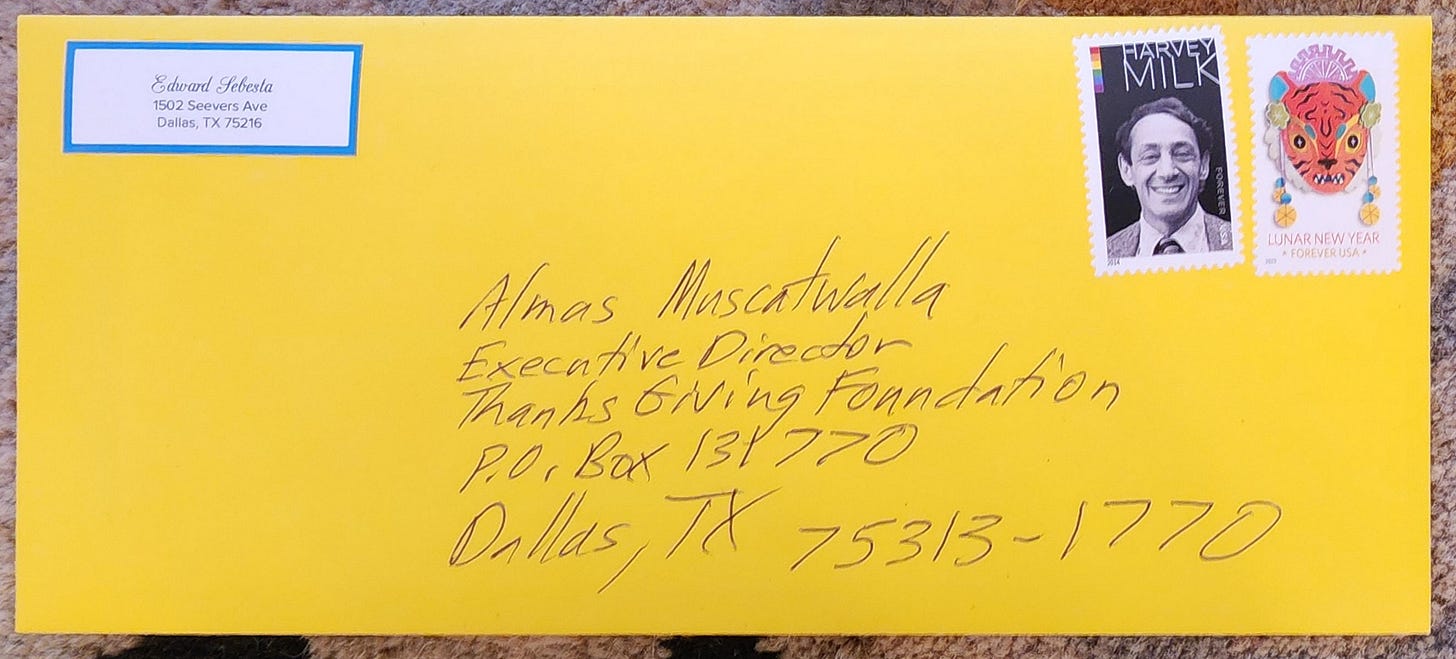 Edward Sebesta
1502 Seevers Ave
Dallas, TX 75216
HARVEY
MILK
FOREVER USA
2014
LUNAR NEW YEAR
* FOREVER USA *
Almas Muscatwalla
Executive Director
Thanks Giving Foundation
P.O. Box 131770
Dallas, TX 75313-1770